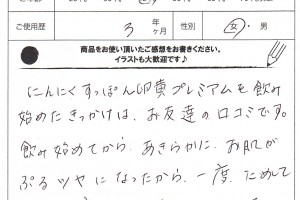 ご使用歴 3 年 ヶ月 性別 女・男
商品をお使い頂いたご感想をお書きください。
イラストも大歓迎です♪
にんにくすっぽん卵黄プレミアムを飲み
始めたきっかけは、お友達の口コミです。
飲み始めてから、あきらかに、お肌が
ぷるツヤになったから、一度、ためして